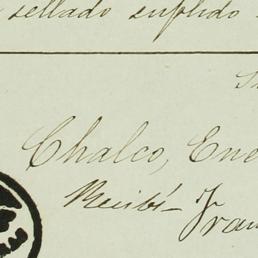 sellado suplido
Chalco, Ene
Recibí
Fran